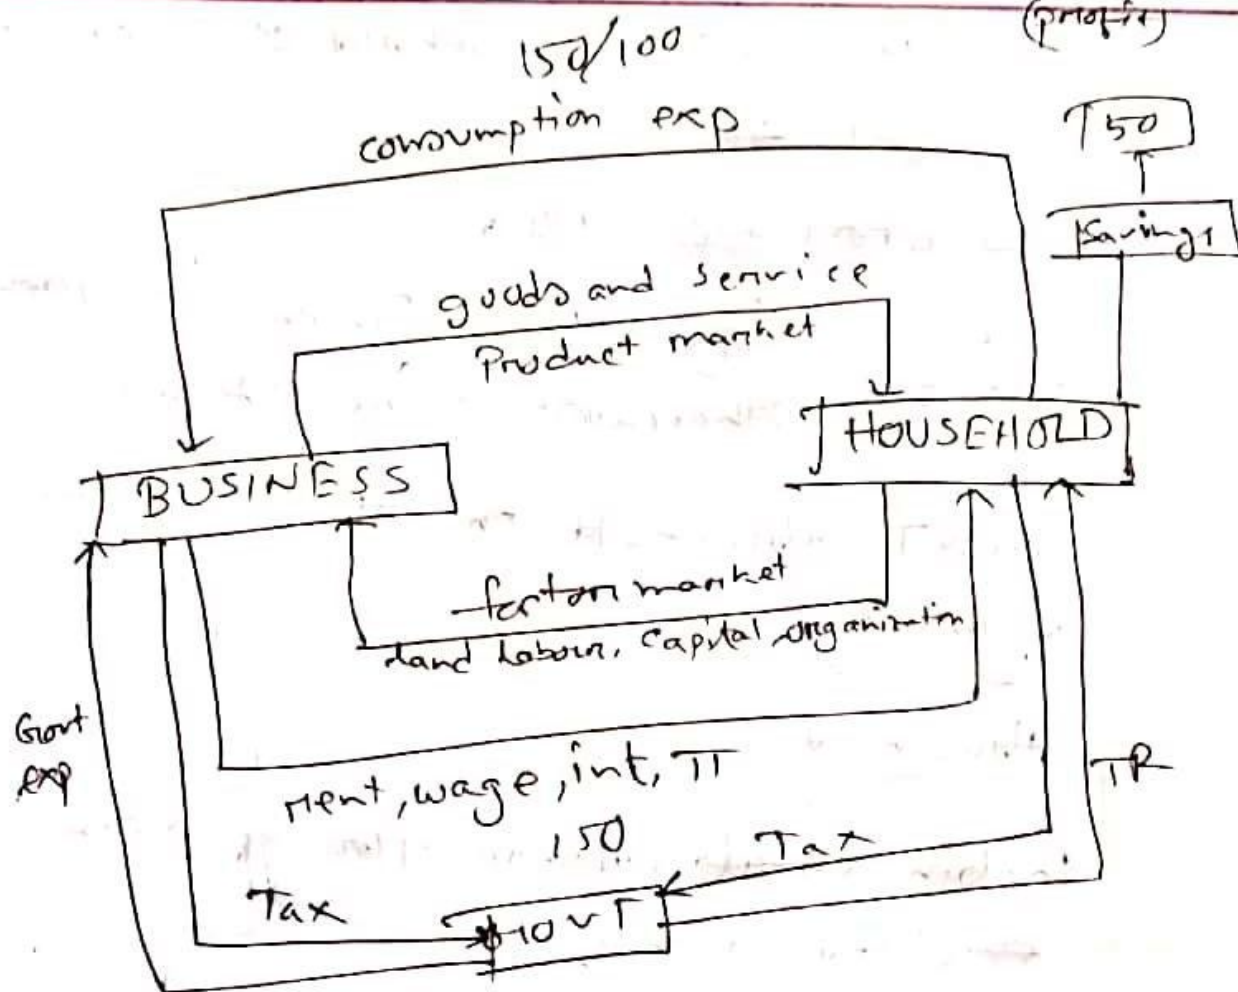 (profit)
150/100
consumption exp
50
Savings
goods and service
Product market
HOUSEHOLD
BUSINESS
factor market
land labour, capital, organization
Govt
exp
rent, wage, int, π
150
TR
Tax
Tax
GOVT